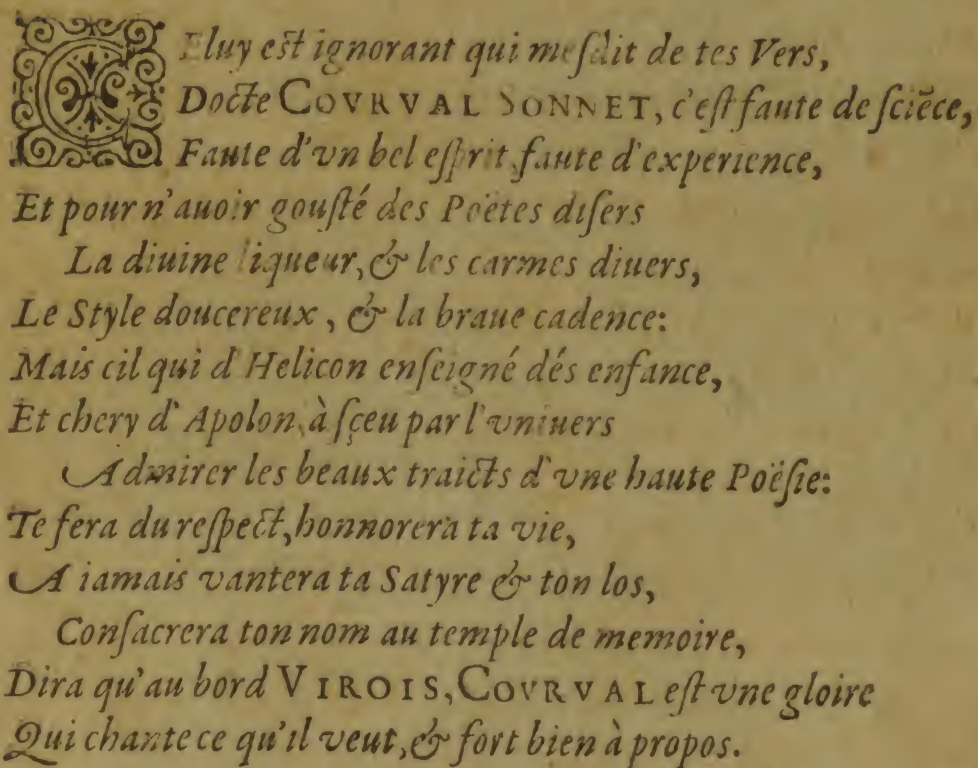 Celuy est ignorant qui mesdit de tes Vers,
Docte COVRVAL SONNET, c'est faute de sciēce,
Faute d'vn bel esprit, faute d'experience,
Et pour n'auoir gousté des Poëtes disers
La diuine liqueur, & les carmes diuers,
Le Style doucereux, & la braue cadence:
Mais cil qui d'Helicon enseigné dés enfance,
Et chery d'Apolon, à sçeu par l'vniuers
Admirer les beaux traicts d'vne haute Poësie:
Te fera du respect, honnorera ta vie,
A iamais vantera ta Satyre & ton los,
Consacrera ton nom au temple de memoire,
Dira qu'au bord VIROIS, COVRVAL est vne gloire
Qui chante ce qu'il veut, & fort bien à propos.